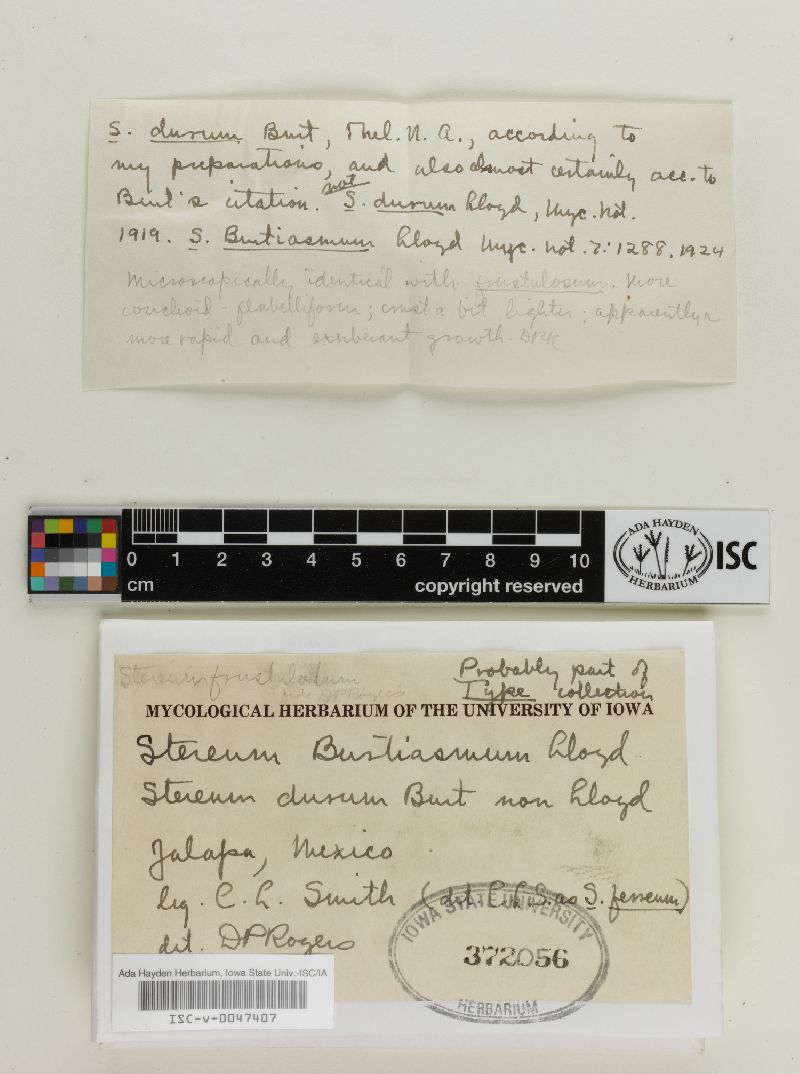 S. durum Burt, Thel. N. A., according to
my preparations, and also almost certainly acc. to
Burt's citation. not S. durum Lloyd, Myc. Not.
1919. S. Burtiasmum Lloyd Myc. not. 7: 1288. 1924
Microscopically identical with frustulosum. More
conchoid-flabelliform; crust a bit lighter; apparently
more rapid and exuberant growth. DPR
0 1 2 3 4 5 6 7 8 9 10
cm
copyright reserved
ADA HAYDEN
HERBARIUM
ISC
Stereum frustulosum
fide DPRogers
Probably part of
Type collection
MYCOLOGICAL HERBARIUM OF THE UNIVERSITY OF IOWA
Stereum Burtiasmum Lloyd
Stereum durum Burt non Lloyd
Jalapa, Mexico
leg. C. L. Smith (det. C.L.S. as S. ferreum)
det. DPRogers
IOWA STATE UNIVERSITY
372056
HERBARIUM
Ada Hayden Herbarium, Iowa State Univ.-ISC/IA
ISC-v-0047407